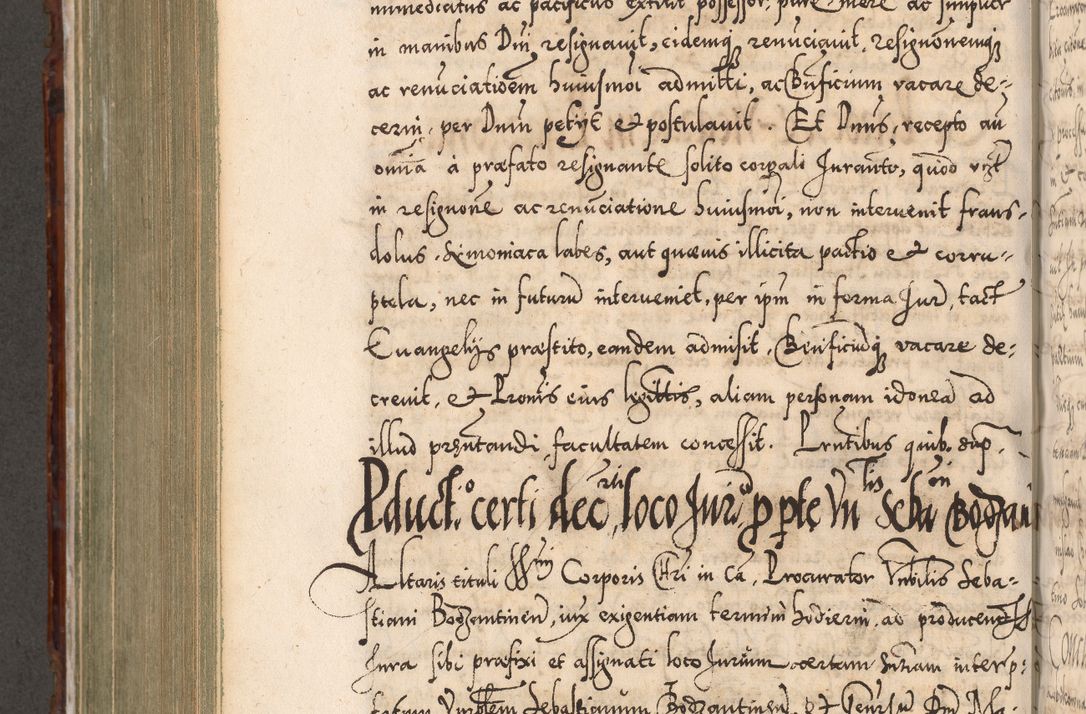 immediatus ac pacificus extitit possessor, pure mere ac simplicr
in manibus Dni resignavit, eidemq renuciavit, resignonemq
ac renuciationem huiusmoi admitti, ac Bnficium vacare de-
cerni, per Dnum petijt et postulavit. Et Dnus, recepto an
omnia à præfato resignante solito corpali Iuranto, quod
in resignone ac renuciatione huiusmoi, non intervenit fraus,
dolus, Simoniaca labes, aut quævis illicita pactio et corru-
ptela, nec in futuru interveniet, per ipm in forma Iur, tact
Euangelijs præstito, eandem admisit, Bnficiumq vacare de-
crevit, et Pronis eius legittis, aliam personam idonea ad
illud præntandi, facultatem concessit. Prntibus quib. sup.
Pductio certi decrti, loco Iuriu p pte Vnlis Sebani Bodzan
Altaris tituli SSmi Corporis Chri in Ca, Procurator Vnbilis Seba-
stiani Bodzantinen, iux exigentiam termini hodierni, ad producend
Iura sibi præfixi et assignati loco Iurium certam sntniam interp-
Vnrblem Sebastianum Bodzantinen, et Dm Ma-